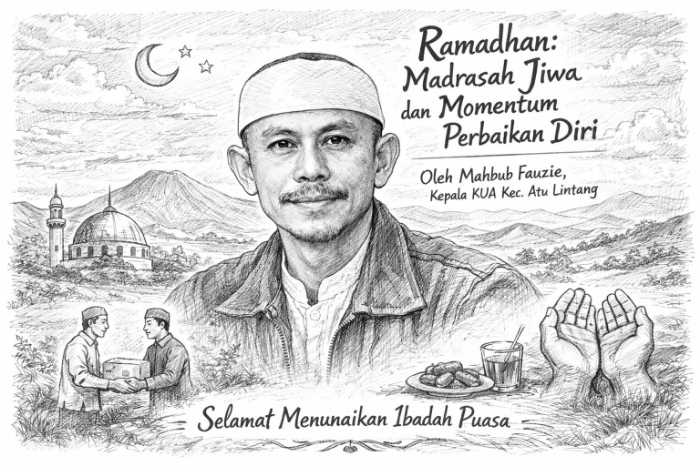 Ramadhan:
Madrasah Jiwa
dan Momentum
Perbaikan Diri
Oleh Mahbub Fauzie,
Kepala KUA Kec. Atu Lintang
Selamat Menunaikan Ibadah Puasa